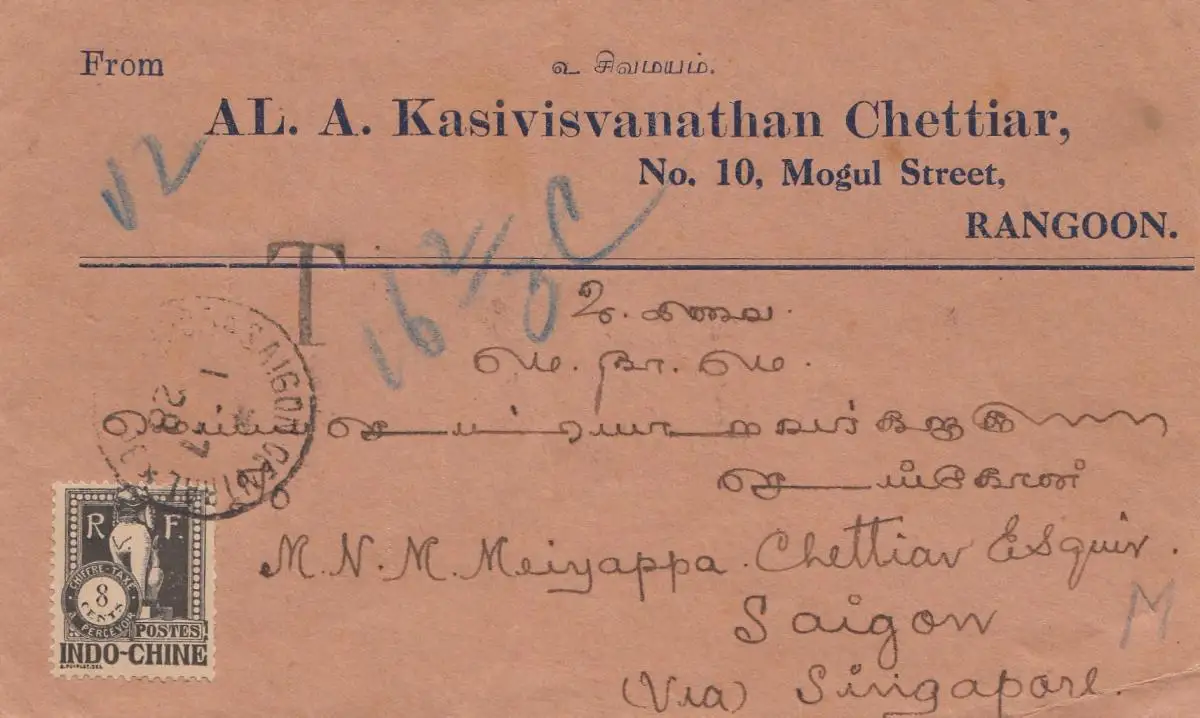 From
உ சிவமயம்.
AL. A. Kasivisvanathan Chettiar,
No. 10, Mogul Street,
RANGOON.
V2
T
16 2/3 C
மெ. நா. மெ.
SAIGON CENTRAL
1
28
7
M. N. M. Meiyappa. Chettiar Esquir.
Saigon
(Via) Singapore.
M
R F.
CHIFFRE-TAXE
8
CENTS
A PERCEVOIR
POSTES
INDO-CHINE